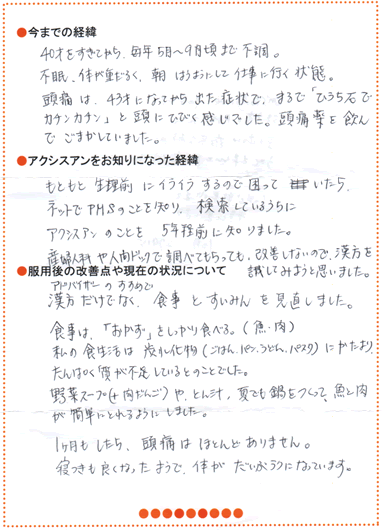 ●今までの経緯
40才をすぎてから、毎年5月〜9月頃まで不調。
不眠、体が重だるく、朝はうおにして仕事に行く状態。
頭痛は、43才になってから出た症状で、まるで「ひうち石で
カチンカチン」と頭にひびく感じでした。頭痛薬を飲ん
でごまかしていました。
●アクシスアンをお知りになった経緯
もともと生理前にイライラするので困っていたら、
ネットでPMSのことを知り、検索しているうちに
アクシスアンのことを5年程前に知りました。
産婦人科や人間ドックで調べてもらっても、改善しないので、漢方を
試してみようと思いました。
●服用後の改善点や現在の状況について
アドバイザーのすすめで
漢方だけでなく、食事とすいみんを見直しました。
食事は、「おかず」をしっかり食べる。(魚・肉)
私の食生活は炭水化物(ごはん、パン、うどん、パスタ)にかたより、
たんぱく質が不足しているとのことでした。
野菜スープ(+肉だんご)や、とん汁、夏でも鍋をつくって、魚と肉
が簡単にとれるようにしました。
1ヶ月もしたら、頭痛はほとんどありません。
寝つきも良くなったようで、体がだいぶラクになっています。